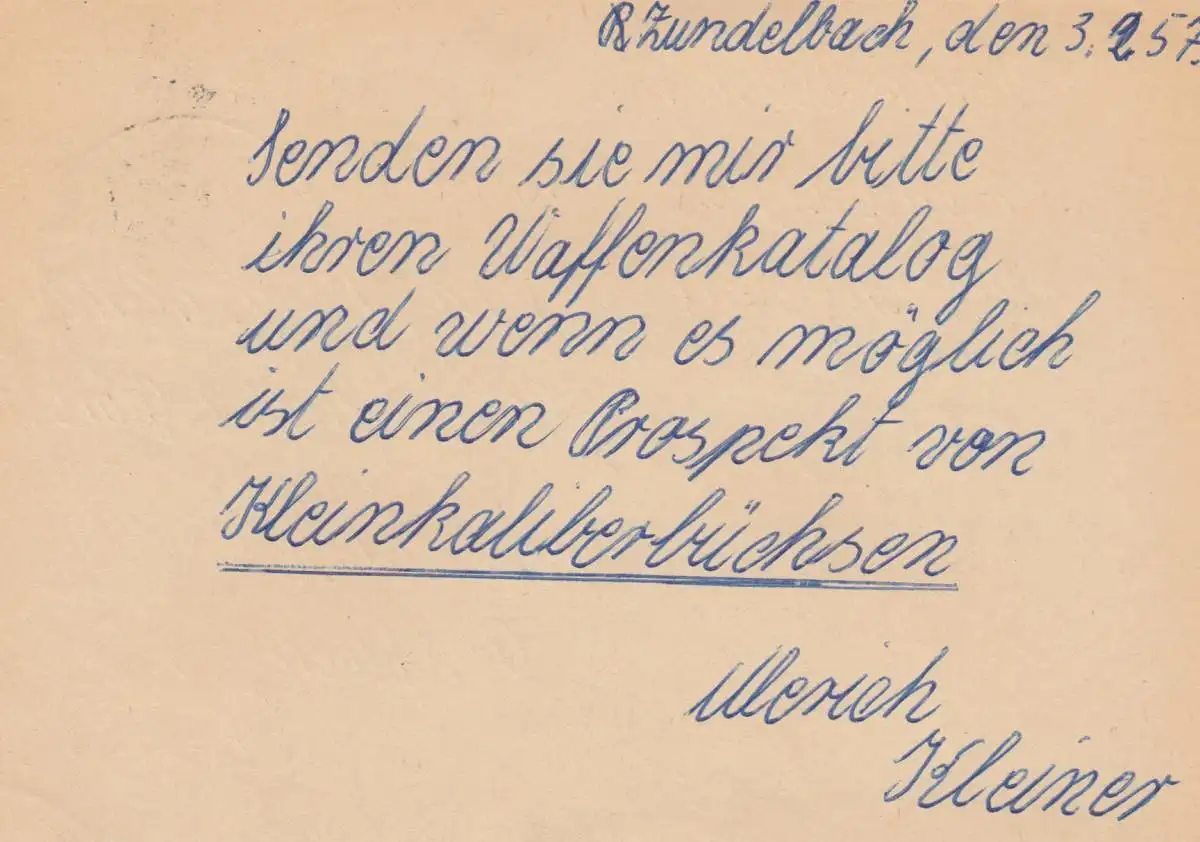 Zundelbach, den 3. 2 57.
Senden sie mir bitte
ihren Waffenkatalog
und wenn es möglich
ist einen Prospekt von
Kleinkaliberbüchsen
Ulerich
Kleiner